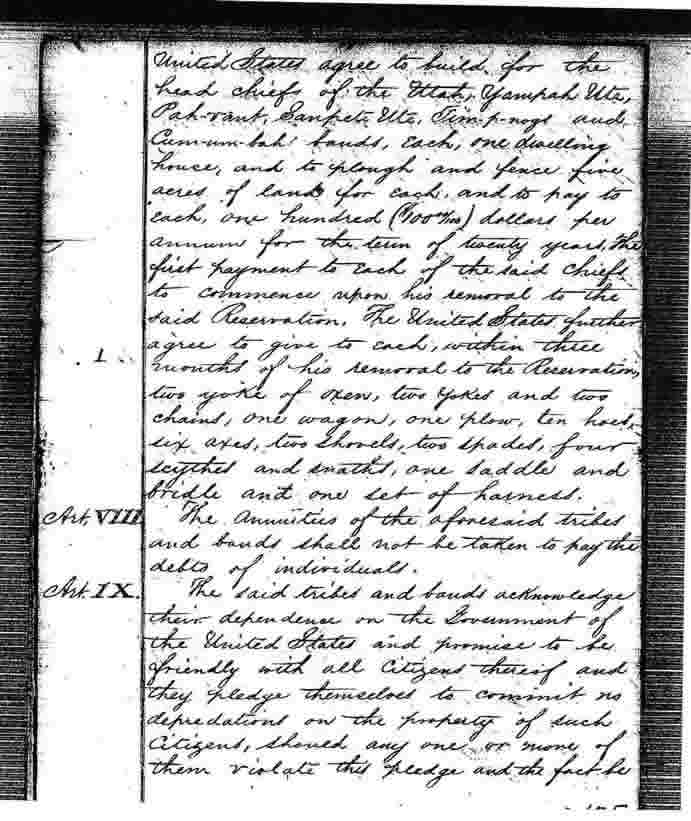 United States agree to build for the
head chiefs of the Utah, Yampah Ute,
Pah-vant, Sanpete Ute, Tim-p-nogs and
Cum-um-bah bands, each, one dwelling
house, and to plough and fence five
acres of land for each, and to pay to
each, one hundred ($100 00/100) dollars per
annum for the term of twenty years, the
first payment to each of the said chiefs
to commence upon his removal to the
said Reservation. The United States further
agree to give to each, within three
1
months of his removal to the Reservation,
two yoke of oxen, two yokes and two
chains, one wagon, one plow, ten hoes,
six axes, two shovels, two spades, four
scythes and snaths, one saddle and
bridle and one set of harness.
Art. VIII The Annuities of the aforesaid tribes
and bands shall not be taken to pay the
debts of individuals.
Art. IX. The said tribes and bands acknowledge
their dependence on the Government of
the United States and promise to be
friendly with all Citizens thereof and
they pledge themselves to commit no
depredations on the property of such
Citizens, should any one or more of
them violate this pledge and the fact be